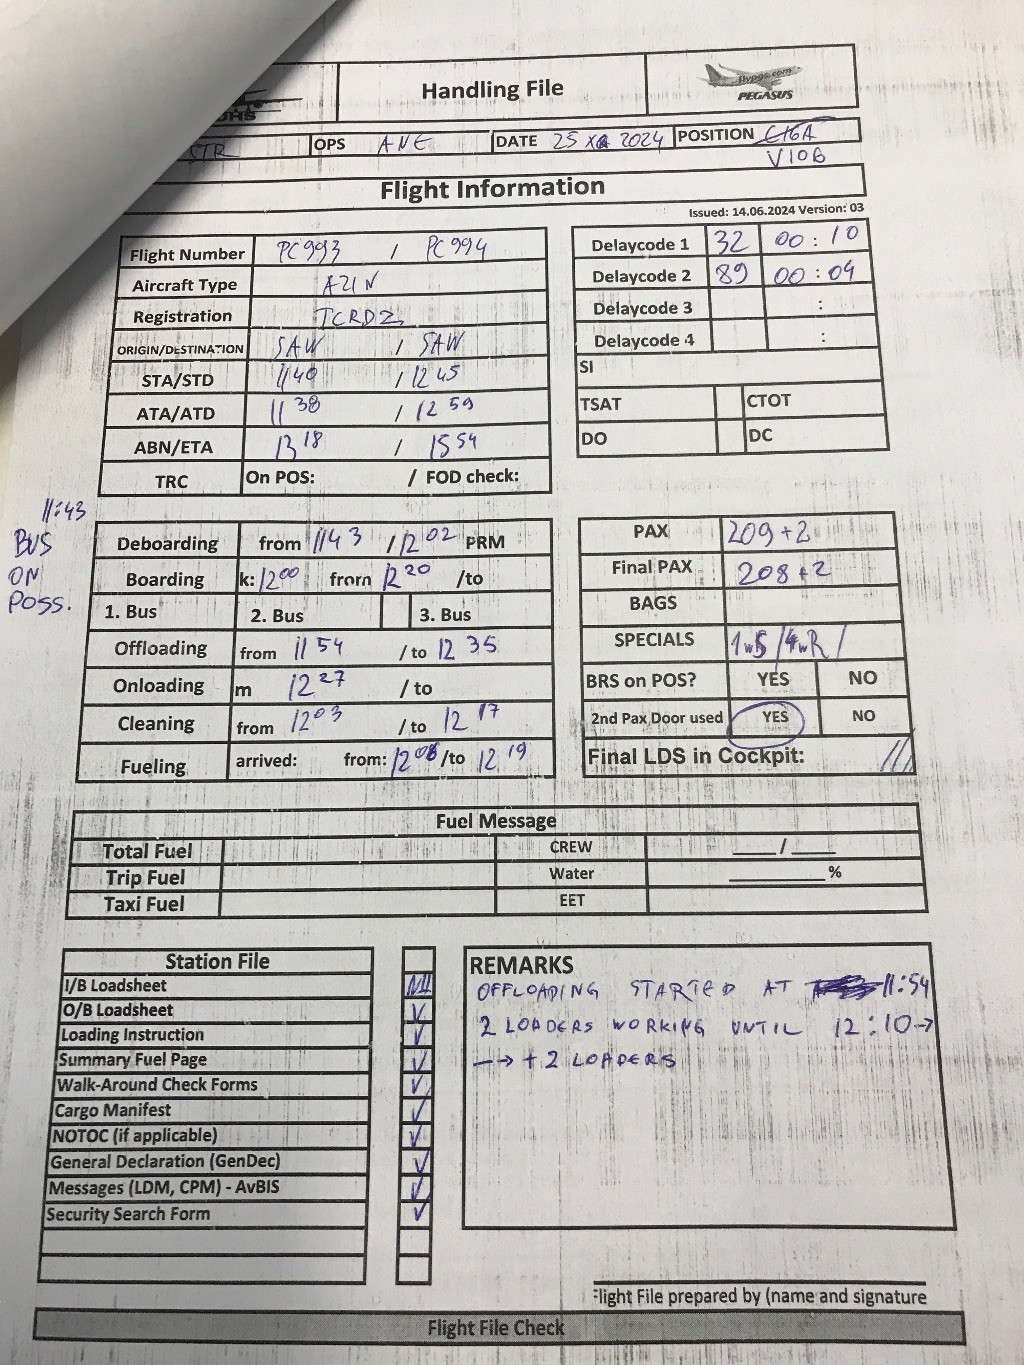 Handling File
flypgs.com
PEGASUS
STR OPS ANE DATE 25 2024 POSITION C16A
V10B
Flight Information
Issued: 14.06.2024 Version: 03
Flight Number PC993 / PC994
Aircraft Type A21N
Registration TCRDZ
ORIGIN/DESTINATION SAW / SAW
STA/STD 1140 / 1245
ATA/ATD 1138 / 1259
ABN/ETA 1318 / 1554
TRC On POS: / FOD check:
Delaycode 1 32 00:10
Delaycode 2 89 00:04
Delaycode 3 :
Delaycode 4 :
SI
TSAT CTOT
DO DC
11:43
BUS
ON
POSS.
Deboarding from 1143 / 1202 PRM
Boarding k: 1200 from 1220 /to
1. Bus 2. Bus 3. Bus
Offloading from 1154 / to 1235
Onloading m 1227 / to
Cleaning from 1203 / to 1217
Fueling arrived: from: 1208 /to 1219
PAX 209+2
Final PAX 208+2
BAGS
SPECIALS 1wS/4wR/
BRS on POS? YES NO
2nd Pax Door used YES NO
Final LDS in Cockpit:
Fuel Message
Total Fuel CREW ___/___
Trip Fuel Water ______%
Taxi Fuel EET
Station File
I/B Loadsheet Nil
O/B Loadsheet
Loading Instruction
Summary Fuel Page
Walk-Around Check Forms
Cargo Manifest
NOTOC (if applicable)
General Declaration (GenDec)
Messages (LDM, CPM) - AvBIS
Security Search Form
REMARKS
OFFLOADING STARTED AT 11:54
2 LOADERS WORKING UNTIL 12:10→
→ + 2 LOADERS
Flight File prepared by (name and signature
Flight File Check